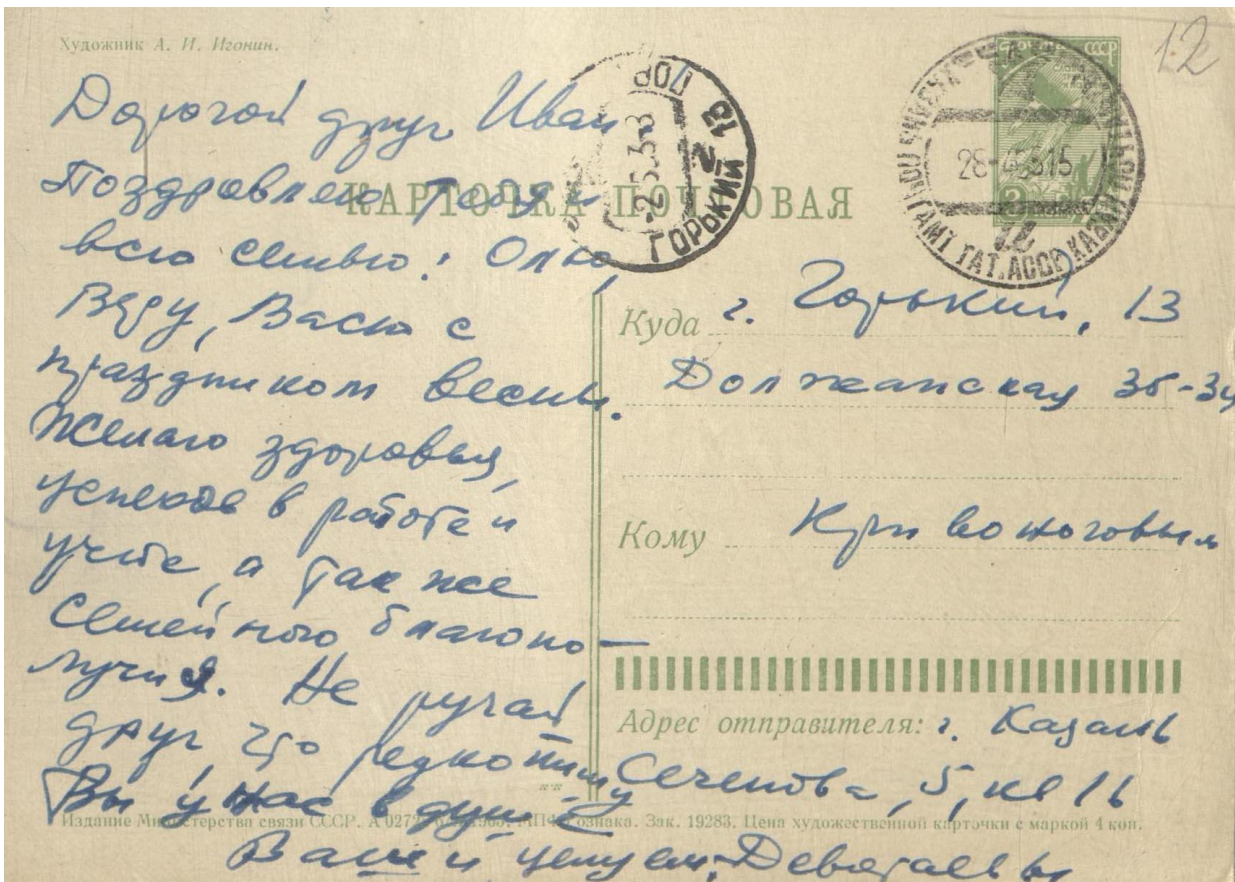 Художник А. И. Игонин.
12
ПОЧТА СССР
КАРТОЧКА ПОЧТОВАЯ
ГОРЬКИЙ 13
-2.5.63-8
28-4.63 15
ПОЧТАМТ ТАТ. АССР КАЗАНЬ
Дорогой друг Иван
Поздравляю тебя и
всю семью: Олю,
Веру, Васю с
праздником весны.
Желаю здоровья,
успехов в работе и
учебе, а также
семейного благопо-
лучия. Не ругай
друг, что редко пишу
Вы у нас в душе
Ваши целуем, Девятаевы
Куда г. Горький, 13
Должанская 36-34
Кому Кривоноговым
Адрес отправителя: г. Казань
Сеченова, 5, кв 16
Издание Министерства связи СССР. А 0272 МПФ Гознака. Зак. 19283. Цена художественной карточки с маркой 4 коп.